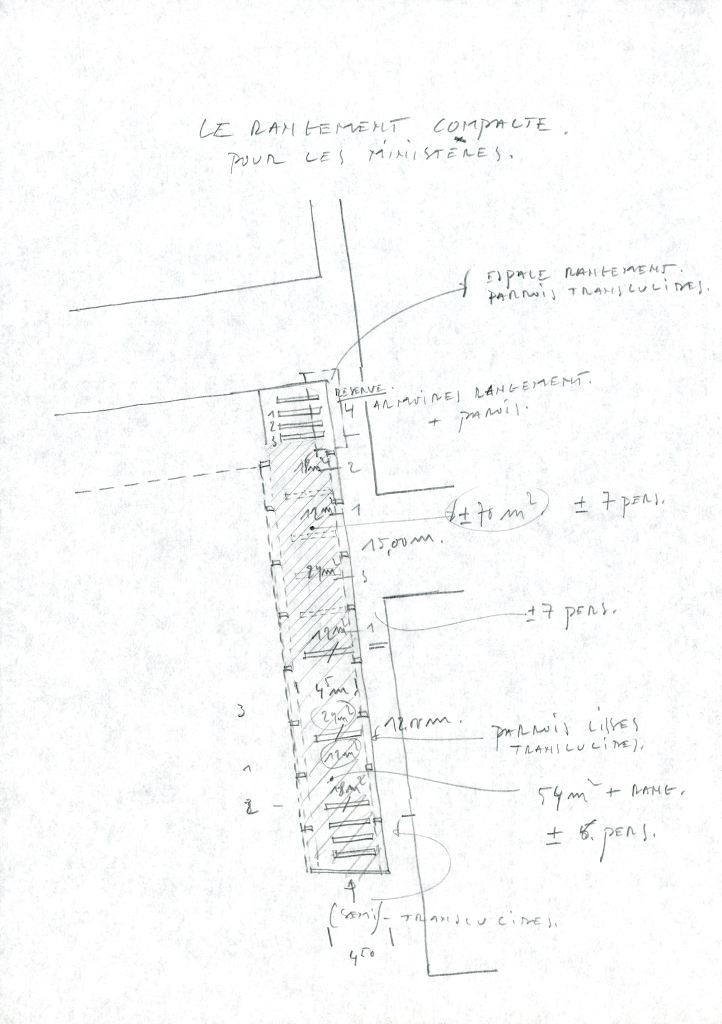 LE RANGEMENT COMPACTE.
POUR LES MINISTÈRES.
ESPACE RANGEMENT.
PAROIS TRANSLUCIDES.
RESERVE.
4 ARMOIRES RANGEMENT.
+ PAROIS.
1
2
3
18m² 2
12m² 1
± 70 m². ± 7 PERS.
15,00m.
24m² 3
± 7 PERS.
12m² 1
45m²
3
24m²
12.00m.
PAROIS LISSES
TRANSLUCIDES.
12m²
1
18m²
54m² + RANG.
2
± 6. PERS.
(SEMI)-TRANSLUCIDES.
450